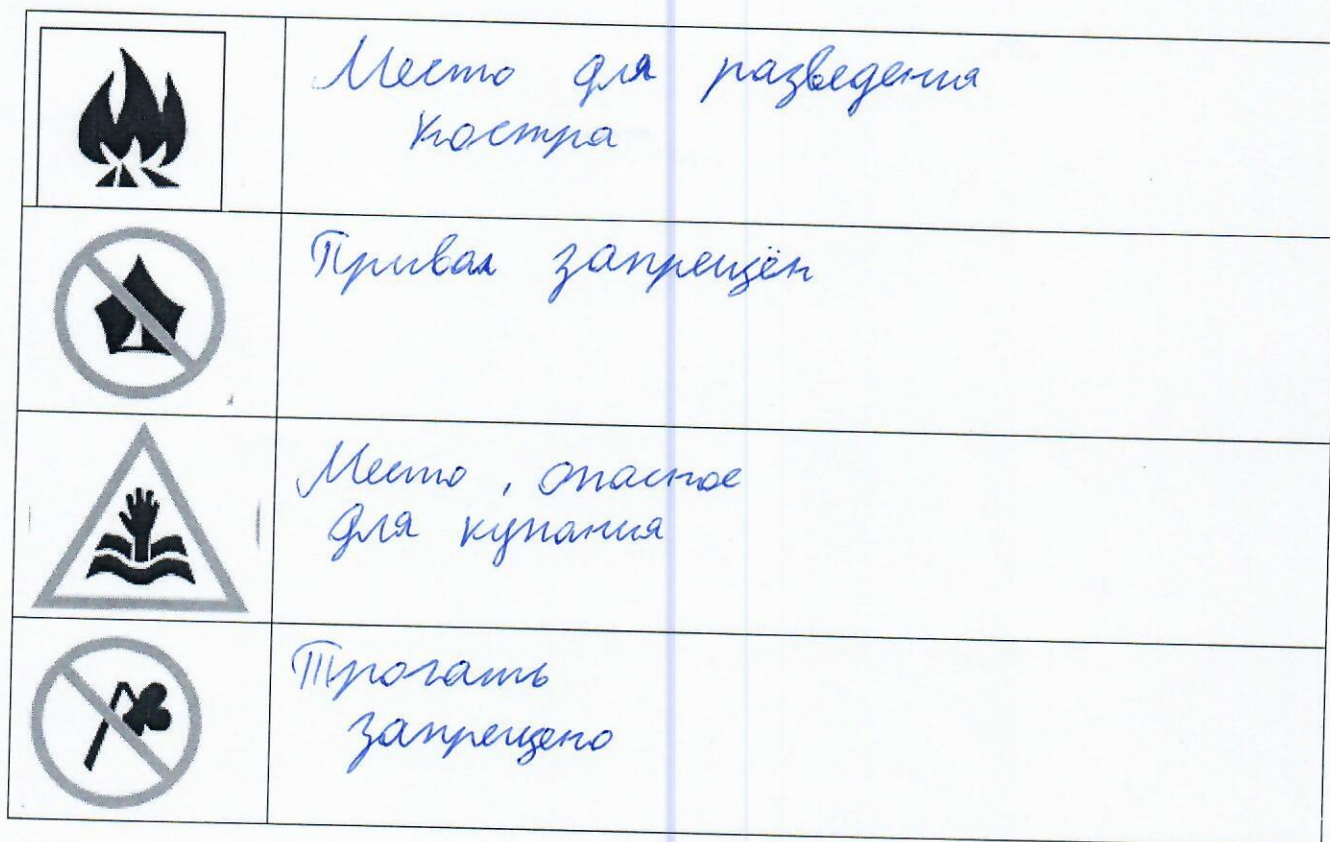 Место для разведения
костра
Привал запрещён
Место, опасное
для купания
Трогать
запрещено